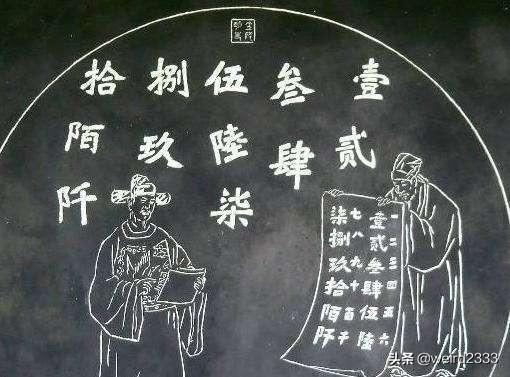 壹貳
叁肆
伍陸柒
捌玖
拾陌阡
一二三四五六
壹貳叁肆伍陸
七八九十百千
柒捌玖拾陌阡
头条